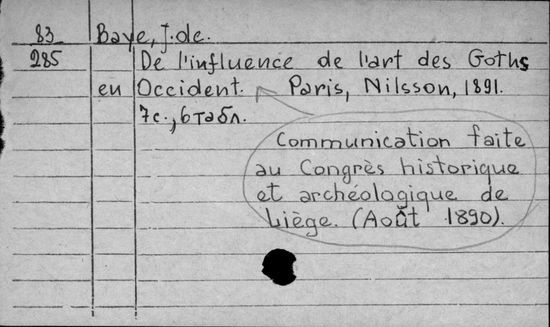 83 Baye, J. de.
285 De l'influence de l'art des Goths
en Occident. Paris, Nilsson, 1891.
7с., 6табл.
Communication faite
au Congrès historique
et archéologique de
Liège. (Août 1890).